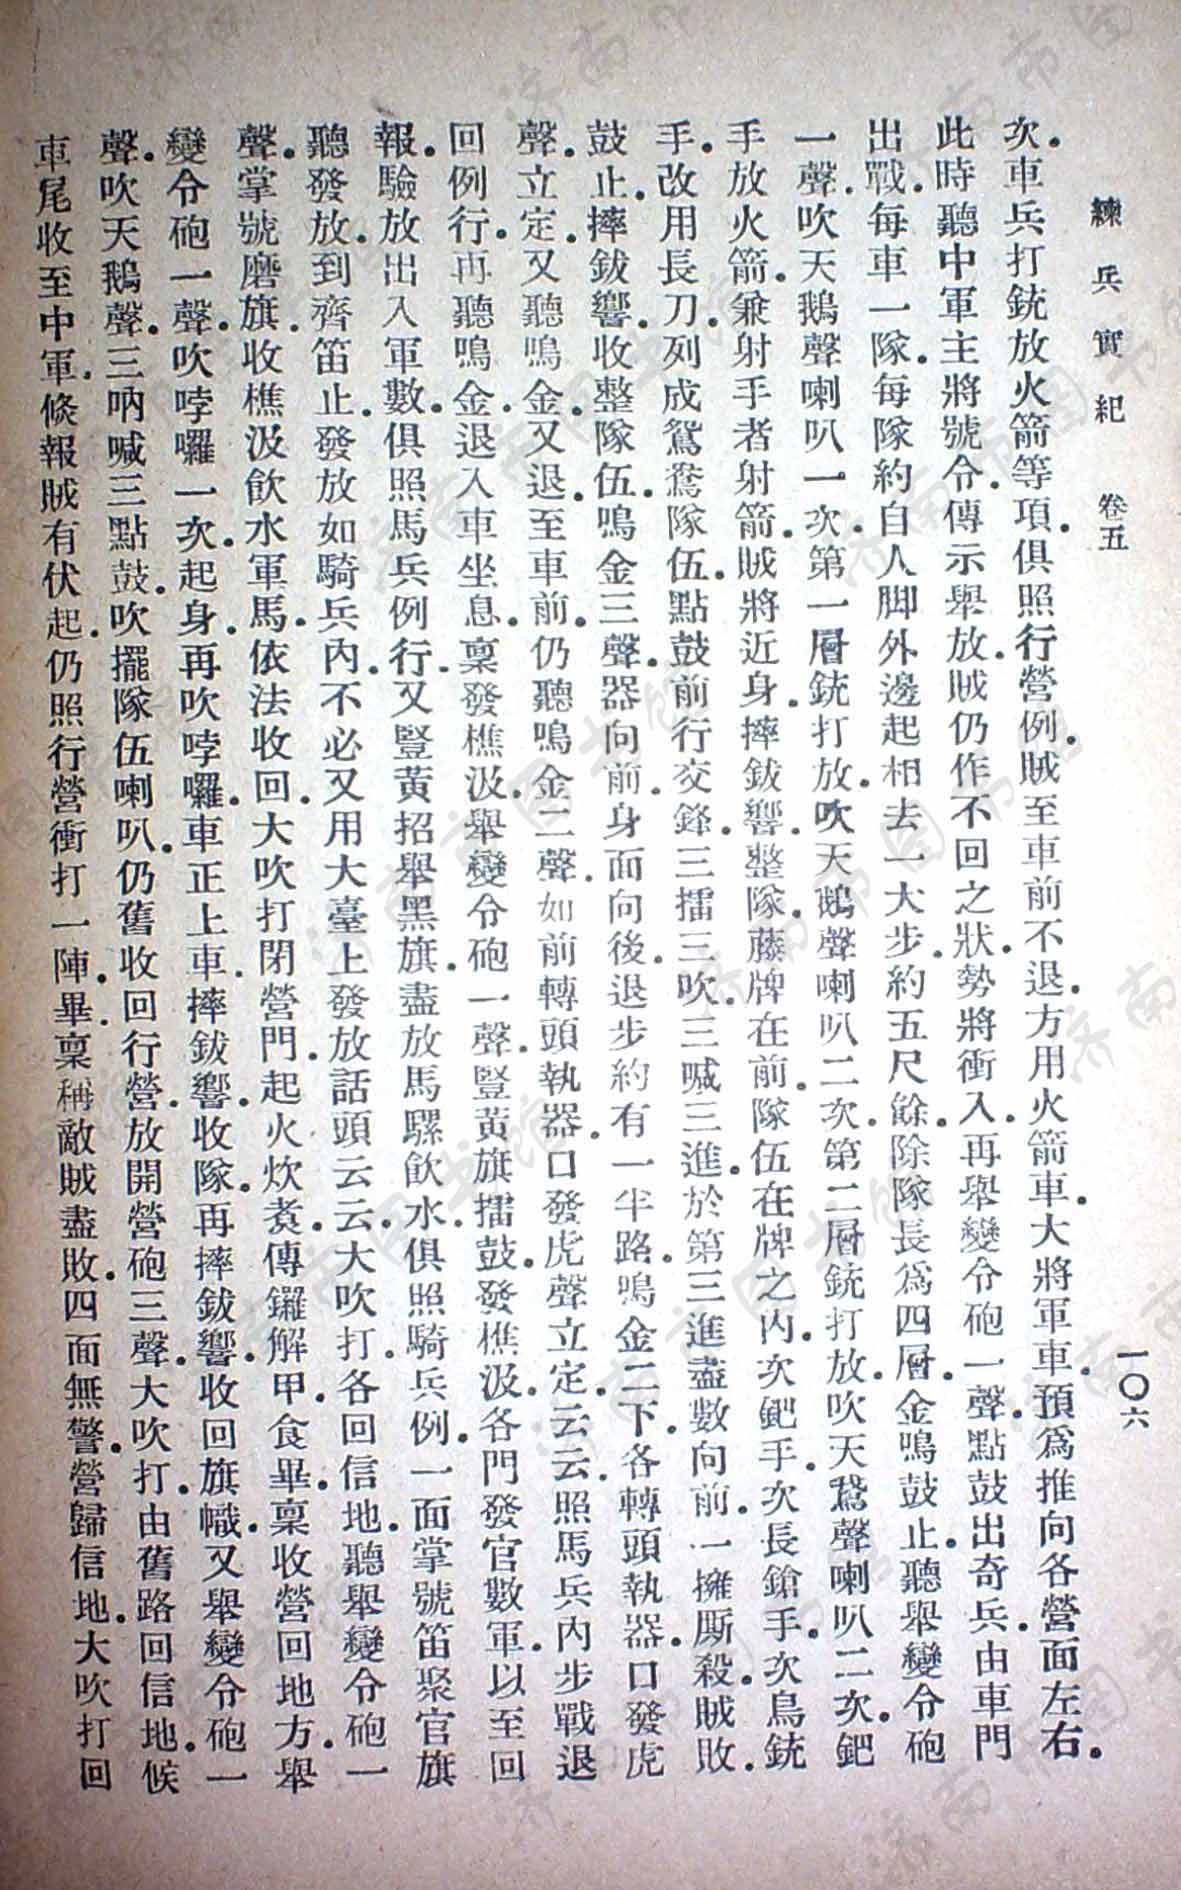 練兵實紀 卷五
一〇六
次。車兵打銃放火箭等項。俱照行營例。賊至車前不退。方用火箭車。大將軍車。預爲推向各營面左右。
此時聽中軍主將號令。傳示舉放。賊仍作不回之狀。勢將衝入。再舉變令砲一聲。點鼓出奇兵。由車門
出戰。每車一隊。每隊約自人脚外邊起相去一大步。約五尺餘。除隊長爲四層。金鳴鼓止。聽舉變令砲
一聲。吹天鵝聲喇叭一次。第一層銃打放。吹天鵝聲喇叭二次。第二層銃打放。吹天鵞聲喇叭二次。鈀
手放火箭。兼射手者射箭。賊將近身。摔鈸響。整隊。藤牌在前。隊伍在牌之內。次鈀手。次長鎗手。次鳥銃
手。改用長刀。列成鴛鴦隊伍。點鼓前行交鋒。三擂三吹。三喊三進。於第三進盡數向前。一擁厮殺。賊敗。
鼓止。摔鈸響。收整隊伍。鳴金三聲。器向前。身面向後。退步約有一半路。鳴金二下。各轉頭執器。口發虎
聲。立定。又聽鳴金。又退。至車前。仍聽鳴金二聲。如前轉頭執器。口發虎聲立定。云云。照馬兵內步戰退
回例行。再聽鳴金。退入車坐息。稟發樵汲。舉變令砲一聲。豎黃旗擂鼓。發樵汲。各門發官數軍。以至回
報。驗放出入軍數。俱照馬兵例行。又豎黃招舉黑旗。盡放馬騾飲水。俱照騎兵例。一面掌號笛聚官旗
聽發放。到齊笛止。發放如騎兵內。不必又用大臺上發放話頭云云。大吹打。各回信地。聽舉變令砲一
聲。掌號磨旗。收樵汲飲水軍馬。依法收回。大吹打閉營門。起火炊煑。傳鑼解甲。食畢。稟收營回地方。舉
變令砲一聲。吹哱囉一次。起身。再吹哱囉。車正上車。摔鈸響。收隊。再摔鈸響。收回旗幟。又舉變令砲一
聲。吹天鵝聲。三吶喊三點鼓。吹擺隊伍喇叭。仍舊收回行營。放開營砲三聲。大吹打。由舊路回信地。候
車尾收至中軍。倐報賊有伏起。仍照行營衝打一陣。畢。稟稱敵賊盡敗。四面無警。營歸信地。大吹打回